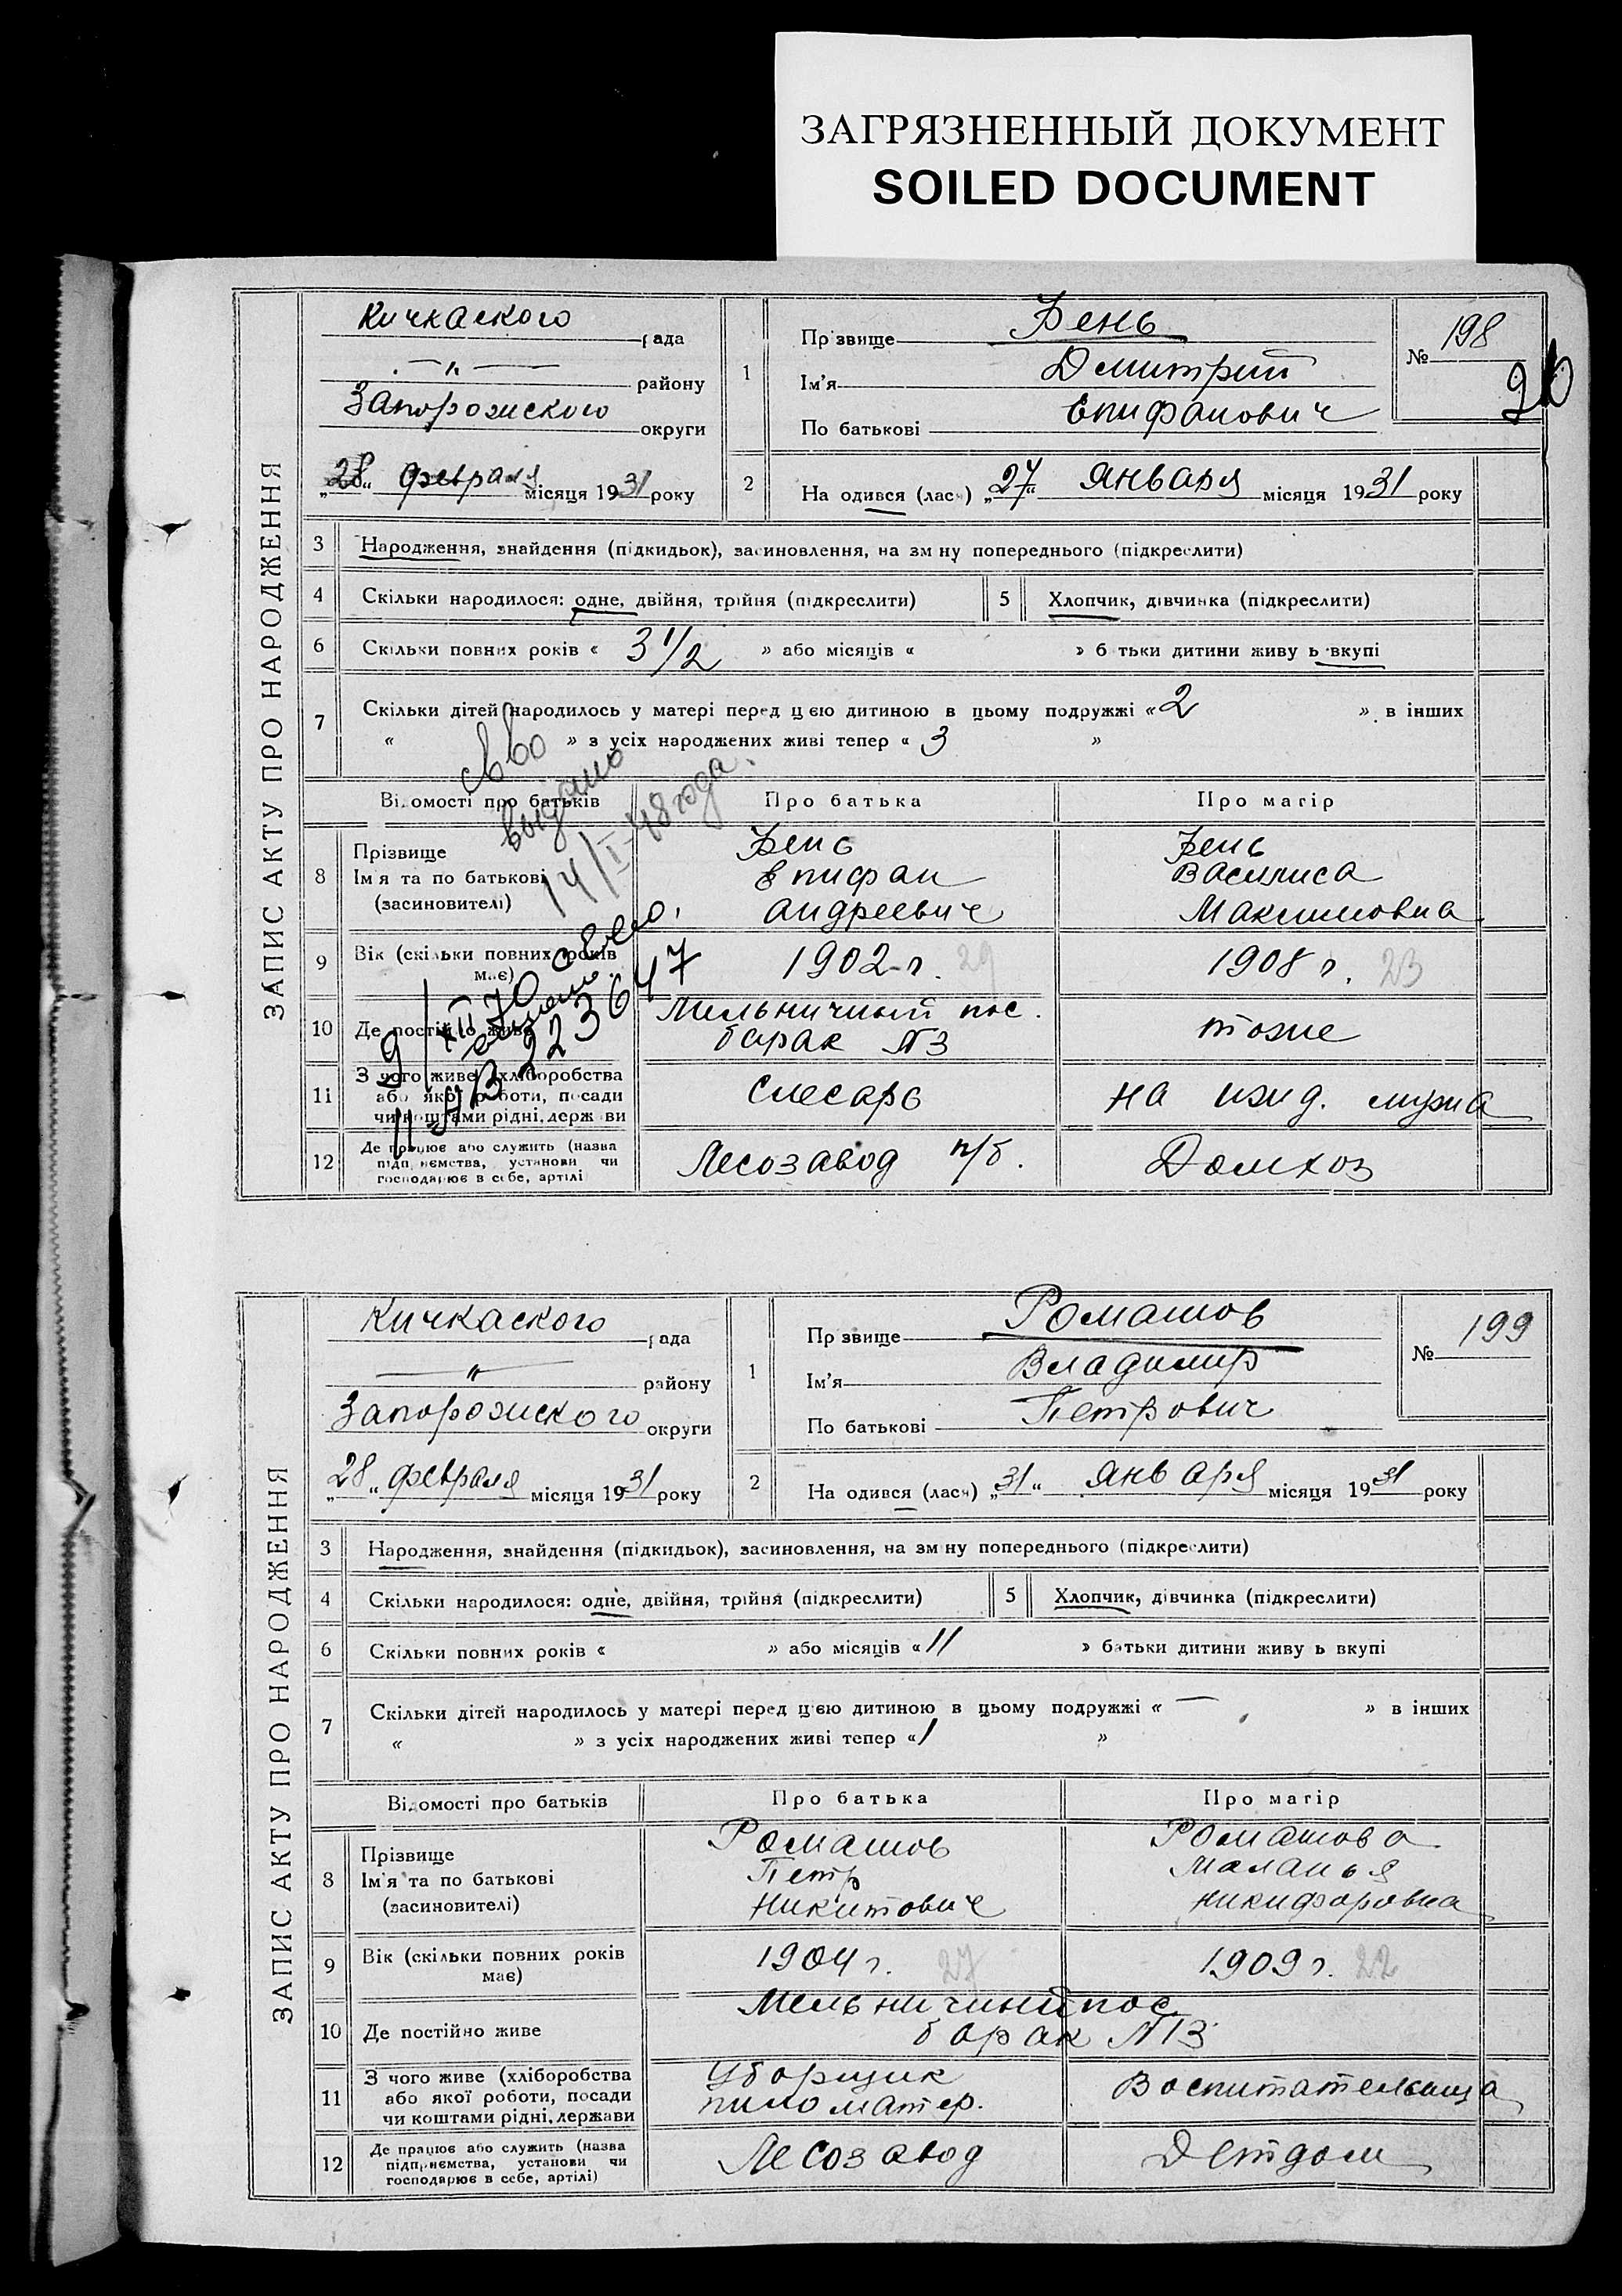 ЗАГРЯЗНЕННЫЙ ДОКУМЕНТ
SOILED DOCUMENT
ЗАПИС АКТУ ПРО НАРОДЖЕННЯ
Кичкаского рада
— " — району
Запорожского округи
„28“ февраля місяця 1931 року
1
Прізвище Бень
Ім'я Дмитрий
По батькові Епифанович
№ 198
2
На одився (лась) „27“ Января місяця 1931 року
3 Народження, знайдення (підкидьок), засиновлення, на зміну попереднього (підкреслити)
4 Скільки народилося: одне, двійня, трійня (підкреслити) 5 Хлопчик, дівчинка (підкреслити)
6 Скільки повних років « 3 1/2 » або місяців « » батьки дитини живуть вкупі
7 Скільки дітей народилось у матері перед цією дитиною в цьому подружжі «2 » в інших
« » з усіх народжених живі тепер « 3 »
св-во
выдано
14/I-48 года.
Відомості про батьків Про батька Про матір
8 Прізвище
Ім'я та по батькові
(засиновителі)
Бень
Епифан
Андреевич
Бень
Василиса
Максимовна
9 Вік (скільки повних років
має)
1902 г. 29
1908 г. 23
10 Де постійно живе
Мельничный пос.
барак №3
тоже
11 З чого живе (хліборобства
або якої роботи, посади
чи коштами рідні, держави
Слесарь
на ижд. мужа
12 Де працює або служить (назва
підприємства, установи чи
господарює в себе, артілі)
Лесозавод п/б.
Домхоз
9/XII 70
223647
ЗАПИС АКТУ ПРО НАРОДЖЕННЯ
Кичкаского рада
— " — району
Запорожского округи
„28“ февраля місяця 1931 року
1
Прізвище Ромашов
Ім'я Владимир
По батькові Петрович
№ 199
2
На одився (лась) „31“ Января місяця 1931 року
3 Народження, знайдення (підкидьок), засиновлення, на зміну попереднього (підкреслити)
4 Скільки народилося: одне, двійня, трійня (підкреслити) 5 Хлопчик, дівчинка (підкреслити)
6 Скільки повних років « » або місяців «11 » батьки дитини живуть вкупі
7 Скільки дітей народилось у матері перед цією дитиною в цьому подружжі « — » в інших
« » з усіх народжених живі тепер «1 »
Відомості про батьків Про батька Про матір
8 Прізвище
Ім'я та по батькові
(засиновителі)
Ромашов
Петр
Никитович
Ромашова
Маланья
Никифоровна
9 Вік (скільки повних років
має)
1904 г. 27
1909 г. 22
10 Де постійно живе
Мельничный пос
барак №13
11 З чого живе (хліборобства
або якої роботи, посади
чи коштами рідні, держави
Уборщик
пиломатер.
Воспитательница
12 Де працює або служить (назва
підприємства, установи чи
господарює в себе, артілі)
Лесозавод
Детдом